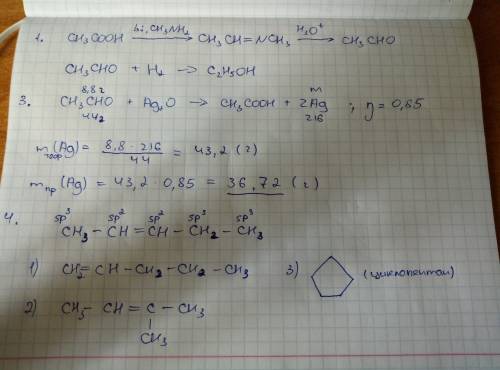 1. CH₃COOH —Li, CH₃NH₂→ CH₃CH=NCH₃ —H₃O⁺→ CH₃CHO
CH₃CHO + H₂ → C₂H₅OH
8,8г m
3. CH₃CHO + Ag₂O → CH₃COOH + 2Ag ; η = 0,85
44 216
mтеор(Ag) = 8,8 · 216 / 44 = 43,2 (г)
mпр (Ag) = 43,2 · 0,85 = 36,72 (г)
sp³ sp² sp² sp³ sp³
4. CH₃ – CH = CH – CH₂ – CH₃
1) CH₂ = CH – CH₂ – CH₂ – CH₃ 3) (циклопентан)
2) CH₃ – CH = C – CH₃
CH₃